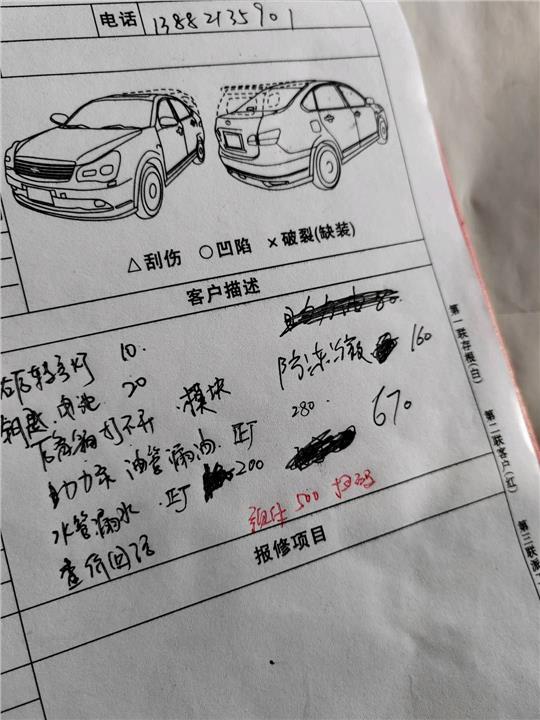 电话 13882135901
△刮伤 ○凹陷 ×破裂(缺装)
客户描述
右后转弯灯 10.
钥匙.电池 20
后备箱打不开.模块 防冻冷液 160
助力泵 油管漏油.旺 280 670
水管漏水.旺 200
查待回话
500 扫码
报修项目
第一联存根(白)
第二联客户(红)
第三联派